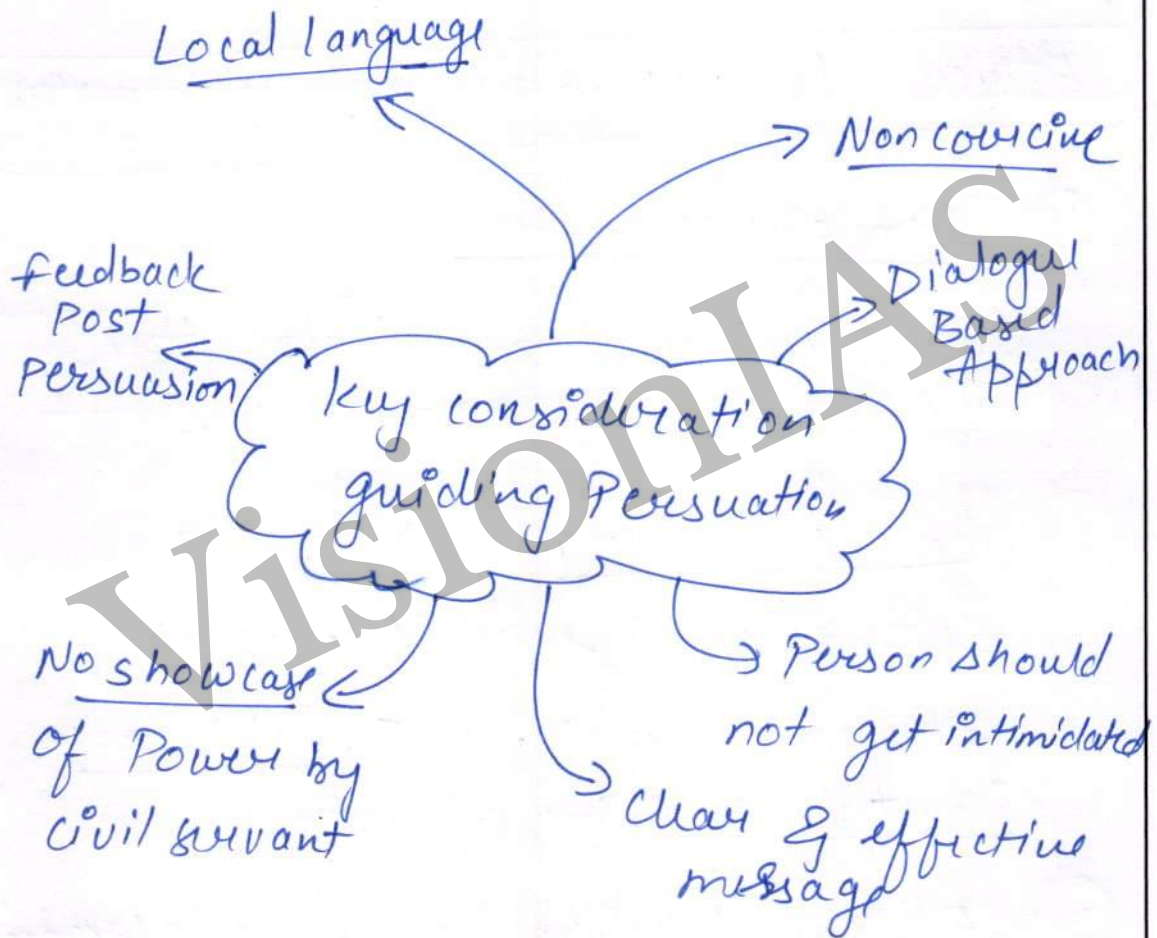 Local language
Non courcive
Feedback
Post
Persuasion
Dialogue
Based
Approach
Key consideration
guiding Persuation
No showcase
of Power by
civil servant
Person should
not get intimidated
Clear & effective
message
VisionIAS